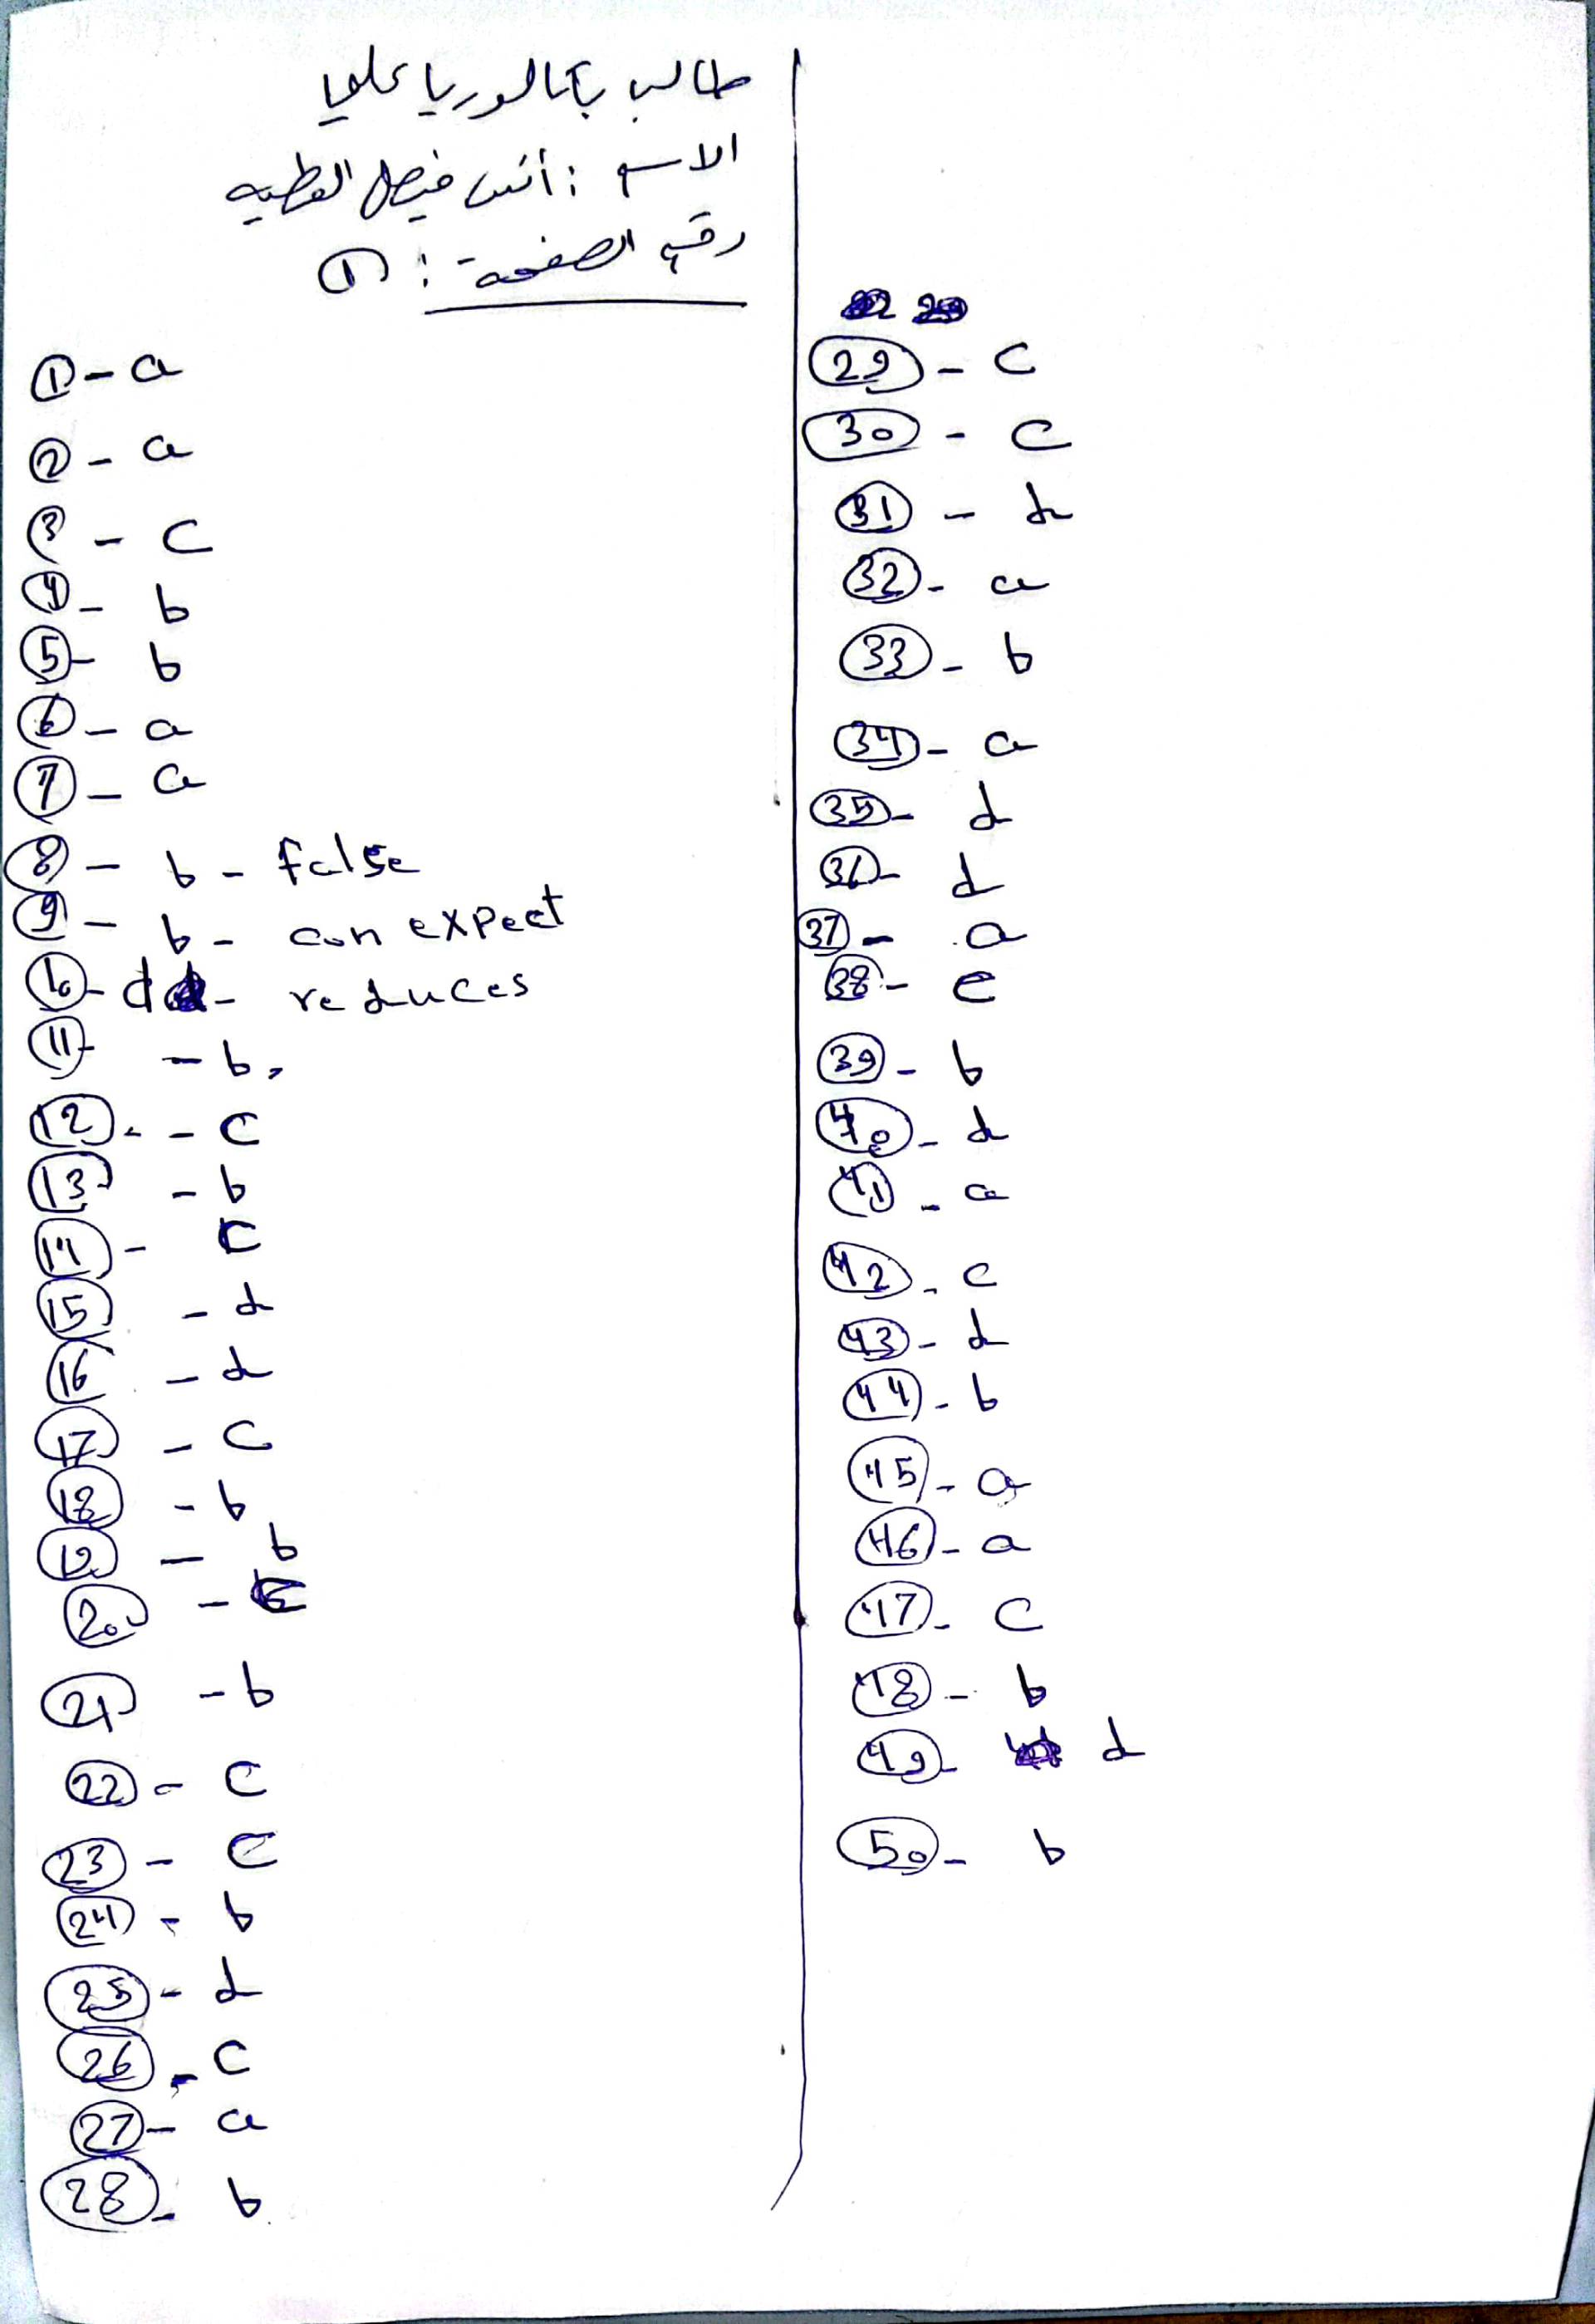 طالب بكالوريا علمي
الاسم : أنس فيصل العطيه
رقم الصفحة : ①
① - a
② - a
③ - c
④ - b
⑤ - b
⑥ - a
⑦ - a
⑧ - b - false
⑨ - b - can expect
⑩ - d - reduces
⑪ - b.
⑫ - - c
⑬ - b
⑭ - c
⑮ - d
⑯ - d
⑰ - c
⑱ - b
⑲ - b
⑳ -
㉑ - b
㉒ - c
㉓ - c
㉔ - b
㉕ - d
㉖ - c
㉗ - a
㉘ - b
㉙ - c
㉚ - c
㉛ - d
㉜ - a
㉝ - b
㉞ - a
㉟ - d
㊱ - d
㊲ - a
㊳ - c
㊴ - b
㊵ - d
㊶ - a
㊷ - c
㊸ - d
㊹ - b
㊺ - a
㊻ - a
㊼ - c
㊽ - b
㊾ - d
㊿ - b